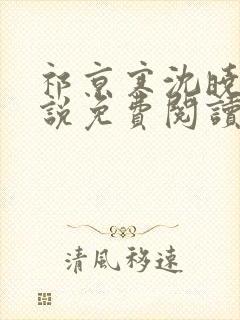 祁京寒沈曉
說免費閱讀
清風移速